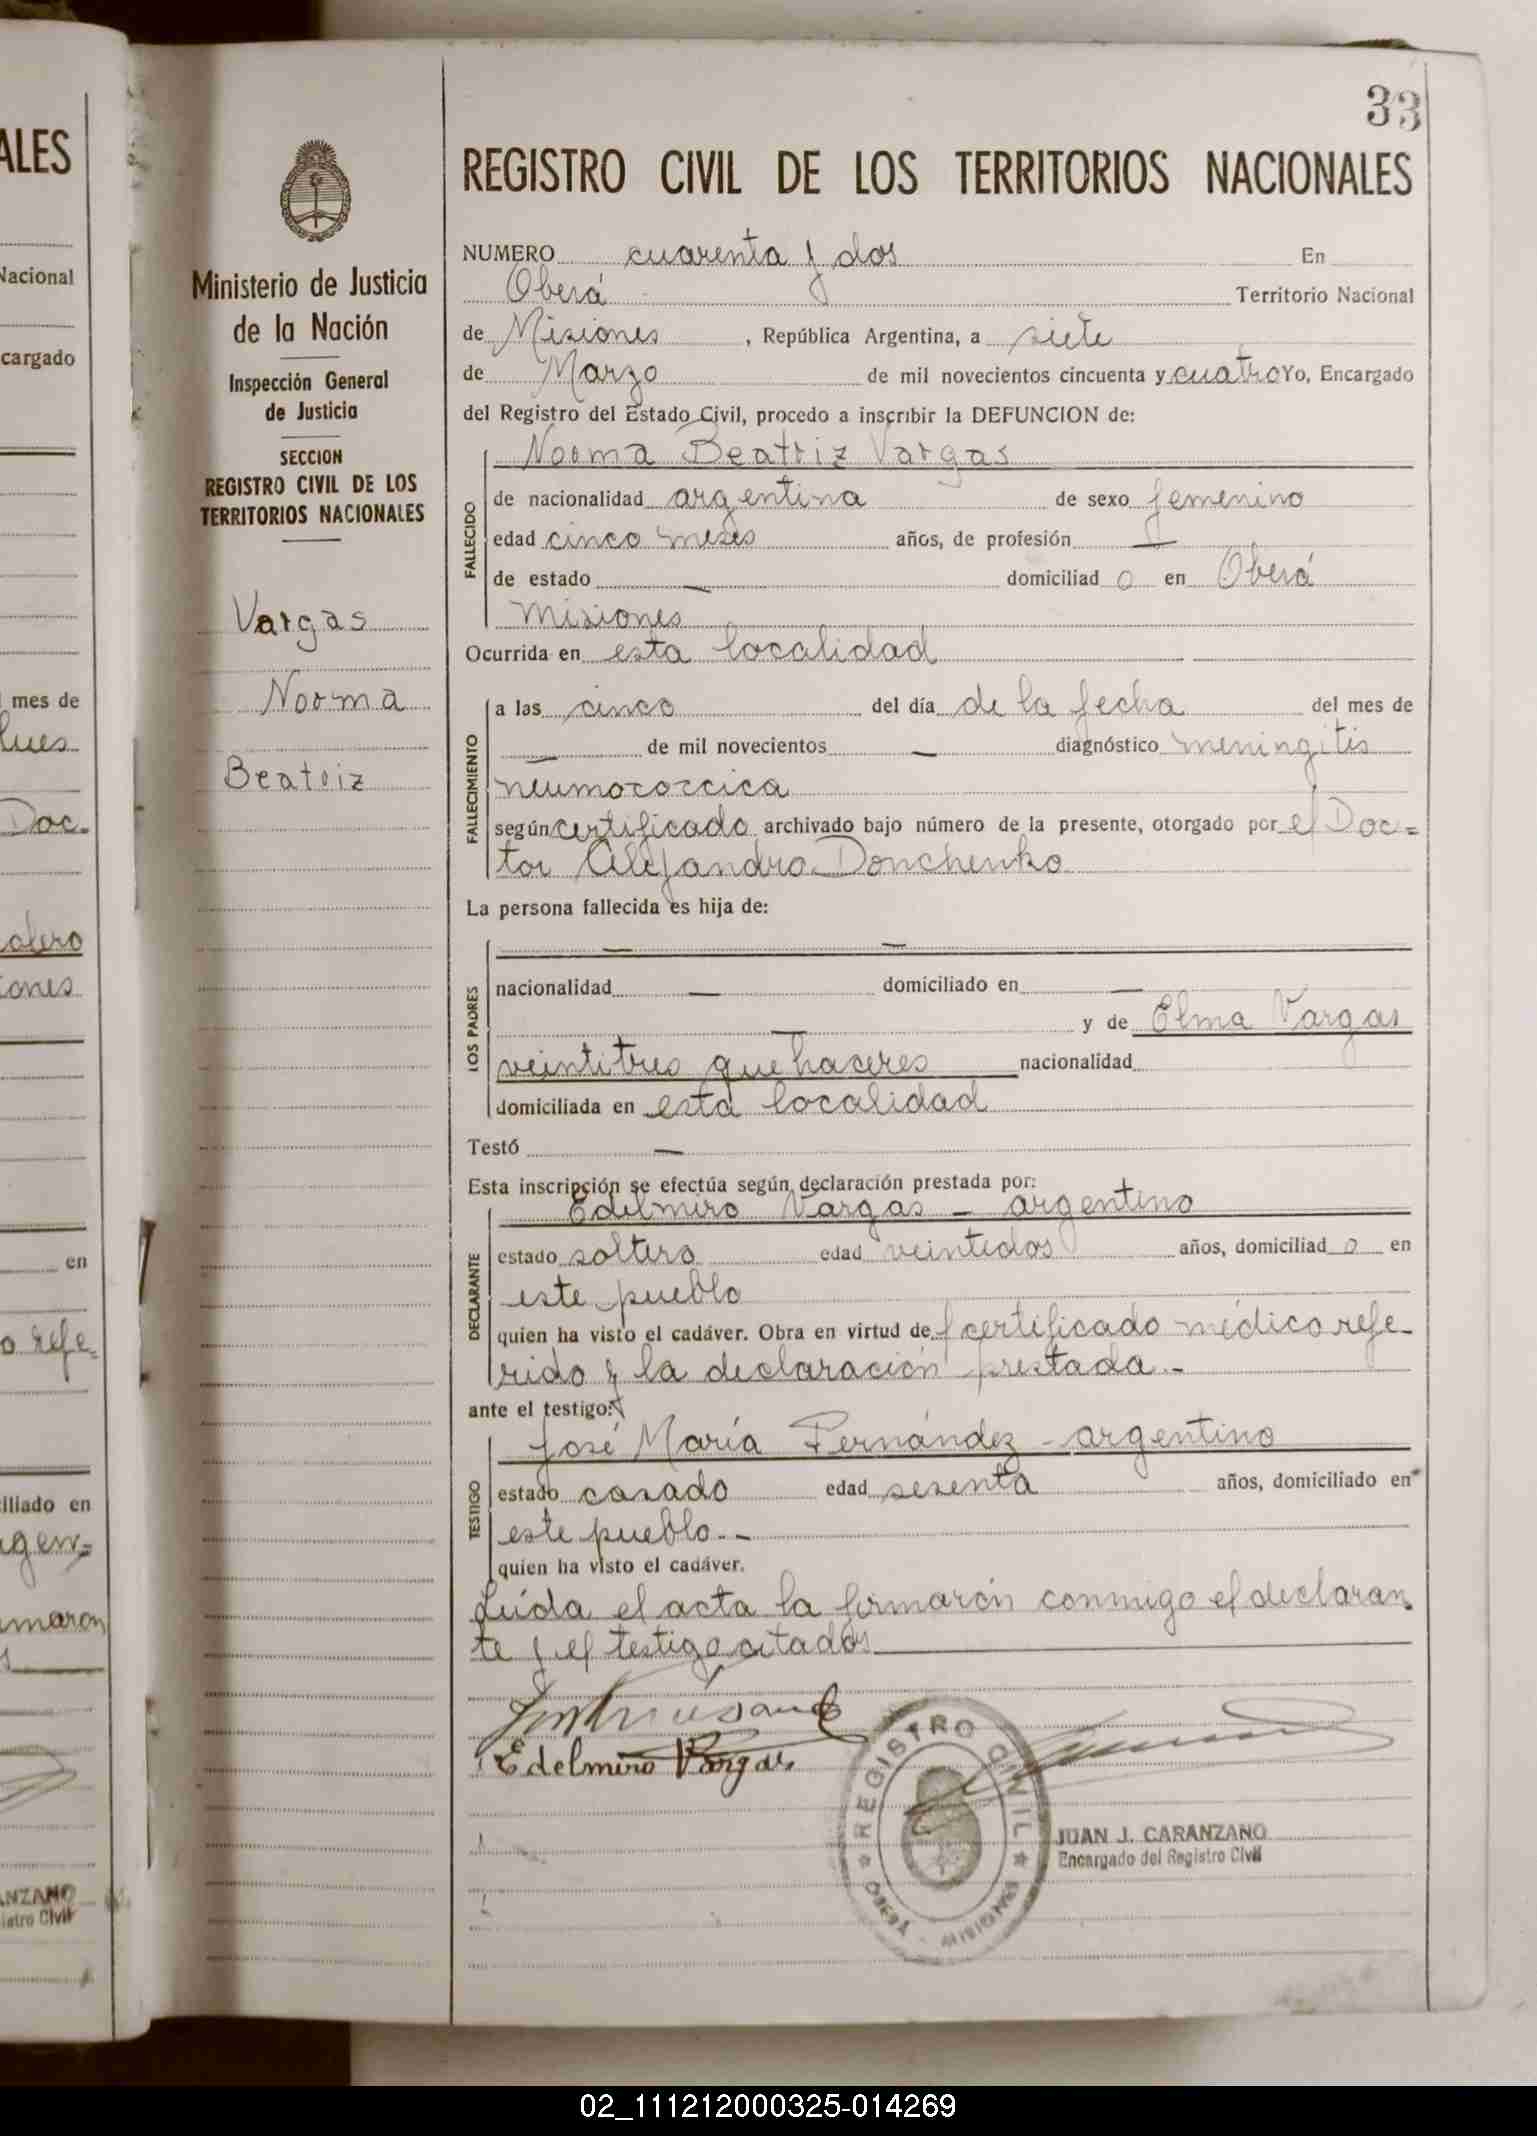 33
REGISTRO CIVIL DE LOS TERRITORIOS NACIONALES
Ministerio de Justicia
de la Nación
Inspección General
de Justicia
SECCION
REGISTRO CIVIL DE LOS
TERRITORIOS NACIONALES
Vargas
Norma
Beatriz
NUMERO cuarenta y dos En
Oberá Territorio Nacional
de Misiones, República Argentina, a siete
de Marzo de mil novecientos cincuenta y cuatro Yo, Encargado
del Registro del Estado Civil, procedo a inscribir la DEFUNCION de:
FALLECIDO
Norma Beatriz Vargas
de nacionalidad argentina de sexo femenino
edad cinco meses años, de profesión —
de estado — domiciliado en Oberá
Misiones
Ocurrida en esta localidad
FALLECIMIENTO
a las cinco del día de la fecha del mes de
— de mil novecientos — diagnóstico meningitis
neumococcica
según certificado archivado bajo número de la presente, otorgado por el Doc=
tor Alejandro Donchenko
La persona fallecida es hija de:
LOS PADRES
— —
nacionalidad — domiciliado en —
— y de Elma Vargas
veintitres que haceres nacionalidad
domiciliada en esta localidad
Testó —
Esta inscripción se efectúa según declaración prestada por:
DECLARANTE
Edelmiro Vargas - argentino
estado soltero edad veintidos años, domiciliado en
este pueblo
quien ha visto el cadáver. Obra en virtud del certificado médico refe-
rido y la declaración prestada.-
ante el testigo:
TESTIGO
José María Fernández - argentino
estado casado edad sesenta años, domiciliado en
este pueblo.-
quien ha visto el cadáver.
Leída el acta la firmarón conmigo el declaran
te y el testigo citados
Edelmiro Vargas
REGISTRO CIVIL
OBERA - MISIONES
JUAN J. CARANZANO
Encargado del Registro Civil
ALES
Nacional
cargado
mes de
lues
Doc.
olero
iones
en
o refe=
iliado en
gen=
maron
ANZANO
istro Civil
02_111212000325-014269